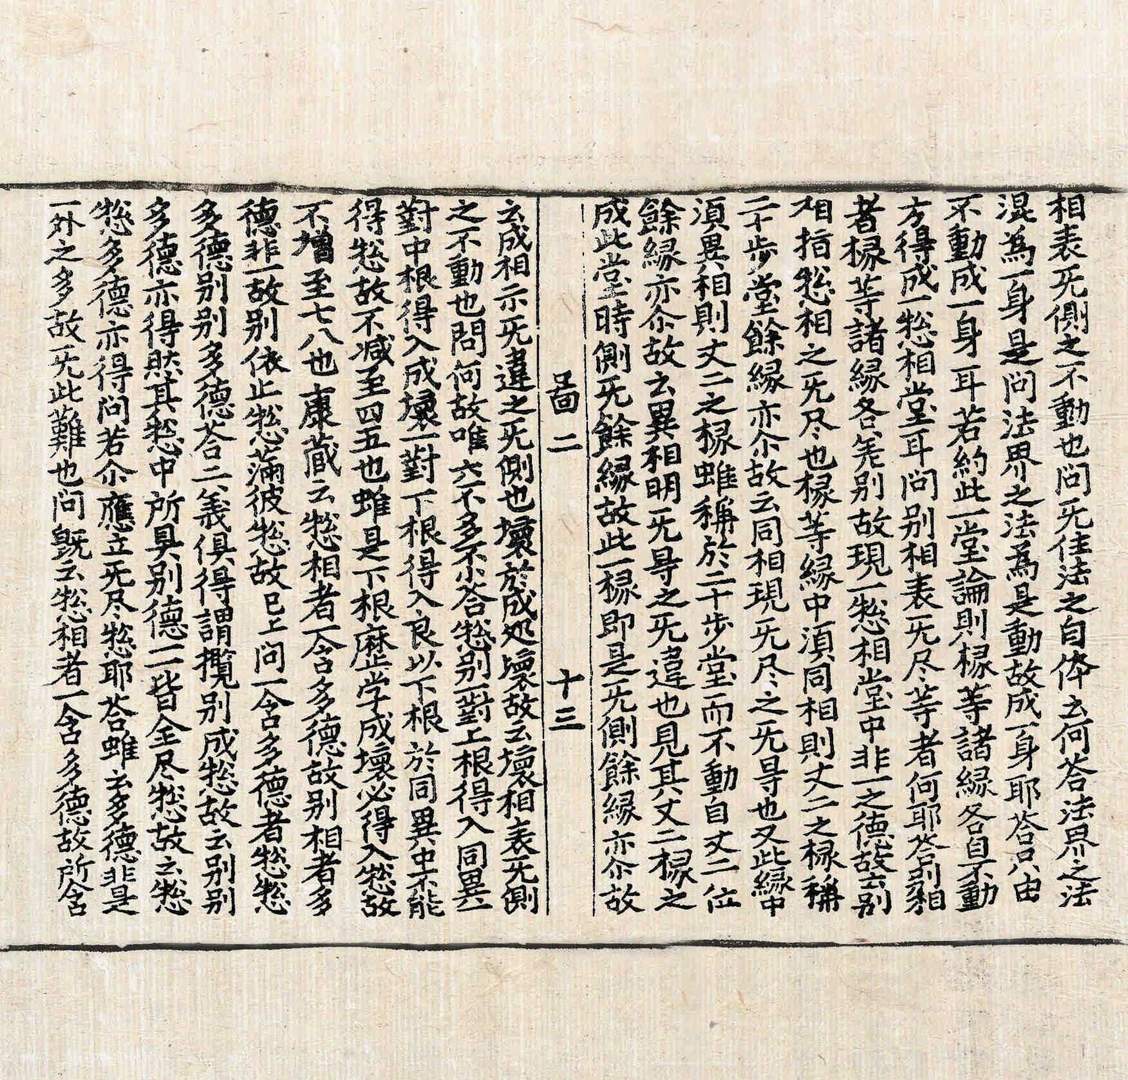 相表无側之不動也問无住法之自体云何荅法界之法
混為一身是問法界之法為是動故成一身耶荅只由
不動成一身耳若約此一堂論則椽等諸縁各自不動
方得成一㹅相堂耳問别相表无尽等者何耶荅别相
者椽等諸縁各各差别故現一㹅相堂中非一之德故云别
相指㹅相之无尽也椽等縁中湏同相則丈二之椽稱
二十步堂餘縁亦尒故云同相現无尽之无㝵也又此縁中
湏異相則丈二之椽雖稱於二十步堂而不動自丈二位
餘縁亦尒故云異相明无㝵之无違也見其丈二椽之
成此堂時側无餘縁故此一椽即是无側餘縁亦尒故
啚二 十三
云成相示无違之无側也壞於成処壞故云壞相表无側
之不動也問何故唯六不多不小荅㹅别一對上根得入同異一
對中根得入成壞一對下根得入良以下根於同異中不能
得㹅故不减至四五也雖是下根歷学成壞必得入㹅故
不增至七八也康蔵云㹅相者一含多德故别相者多
德非一故别依止㹅滿彼㹅故已上問一含多德者㹅㹅
多德别别多德荅二義俱得謂攬别成㹅故云别别
多德亦得然其㹅中所具别德一一皆全尽㹅故云㹅
㹅多德亦得問若尒應立无尽㹅耶荅雖云多德非是
一外之多故无此難也問旣云㹅相者一含多德故所含